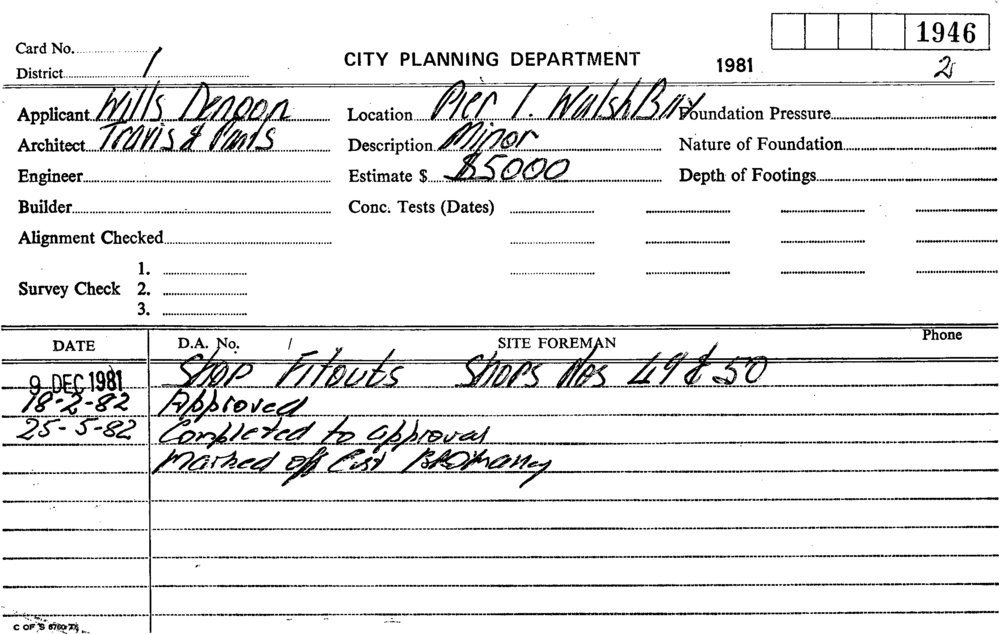 1946
Card No.
CITY PLANNING DEPARTMENT 1981 2
District 1
Applicant Wills Denoon Location Pier 1. Walsh Bay Foundation Pressure
Architect Travis & Description Minor Nature of Foundation
Engineer Estimate $ $5000 Depth of Footings
Builder Conc. Tests (Dates)
Alignment Checked
1.
Survey Check 2.
3.
DATE D.A. No. / SITE FOREMAN Phone
9 DEC 1981 Shop Fitouts Shops Nos 49 & 50
18-2-82 Approved
25-5-82 Completed to approval
Marked off List
C OF S